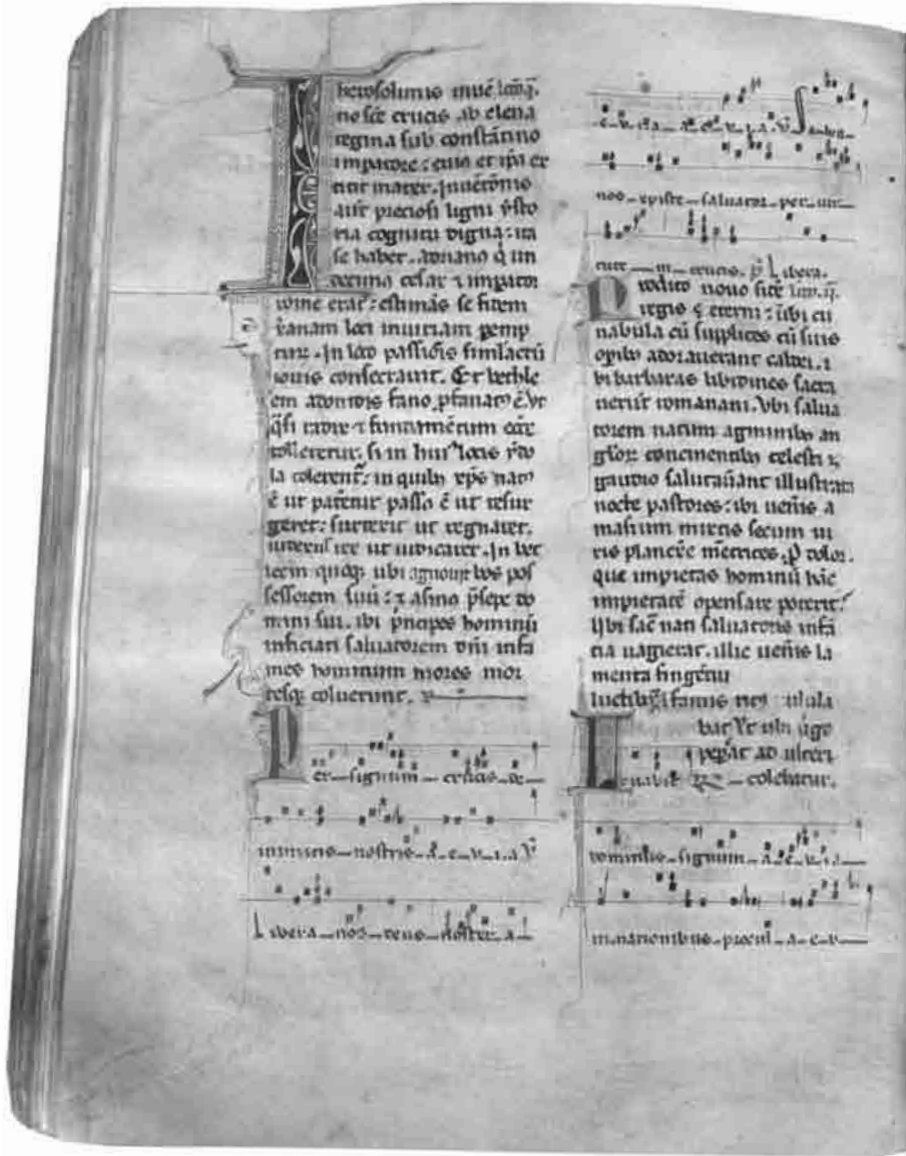 Iherosolimis inuē lcō.ij.
no scē crucis ab elena
regina sub constātino
impatore: cuius et ip̄a ex
titit mater. Inuētionis
autē preciosi ligni ysto
ria cognitu digna: ita
se habet. adriano q̇ un
decimo cesar ⁊ impator
rome erat: estimās se fidem
x̄anam loci iniuriam pemp
turꝰ. In loco passiōis simlacrū
iouis consecrauit. Et bethle
em adonidis fano ꝓfanatᵒ ē. Vt
q̄si radix ⁊ fundamētum ecc̄e
tolleretur: si in his locis ydo
la colerentꝰ: in quibꝰ xp̄s natꝰ
ē ut patetur passꝰ ē ut resur
geret: surrexit ut regnaret.
ut iudicaret. In bet
leem quoqꝫ ubi agnouit bos pos
sessorem suū: ⁊ asinꝰ p̄sepe do
mini sui. ibi p̄ncipes hominū
inficiati saluatorem dn̄i infa
mes hominum mores mor
tesqꝫ coluerunt.
Per signum crucis de
inimicis nostris a e u i a V̄
Libera nos deus noster a
e u i a a e u i a V̄ Salua
nos xpiste saluator per uir
tute m crucis. p̄ Libera.
Prodito nouo sicē lcō.ij.
regis ⁊ eterni: ubi cu
nabula cū supplices cū suis
opibꝰ adorauerant caldei. i
bi barbaras libidines sacra
uerūt romanani. Vbi salua
torem natum agminibꝰ an
gloꝝ concinentibꝰ celesti ⁊
gaudio salutaūant illustrata
nocte pastores: ibi uen̄is a
masium mixtis secum ui
ris plangēre m̄etrices. ꝓ dolor.
que impietas hominū hāc
impietatē opensare poterit?
Ubi sac̄e nati saluatoris infā
cia uagierat. illic uen̄is la
menta fingētiū
luctibꝰ ulula
bat. Et ubi uirgo
pepat adulteri
colebatur.
Leuabit
dominus signum a e u i a
in nationibus procul a e u